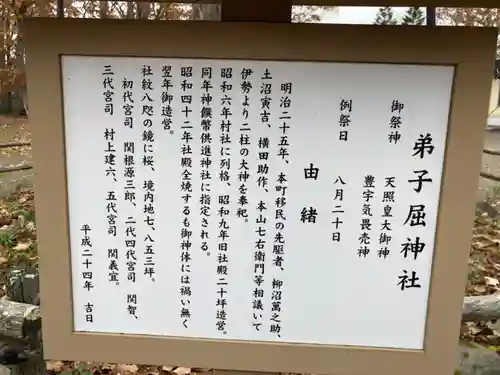 弟子屈神社
御祭神 天照皇大御神
豊宇気毘売神
例祭日 八月二十日
由緒
明治二十五年、本町移民の先駆者、柳沼萬之助、
土沼寅吉、横田助作、本山七右衛門等相議いて
伊勢より二柱の大神を奉祀。
昭和六年村社に列格、昭和九年旧社殿二十坪造営。
同年神饌幣供進神社に指定される。
昭和四十二年社殿全焼するも御神体には禍い無く
翌年御造営。
社紋八咫の鏡に桜、境内地七、八五三坪。
初代宮司 関根源三郎、二代四代宮司 関智、
三代宮司 村上建六、五代宮司 関義宣。
平成二十四年 吉日